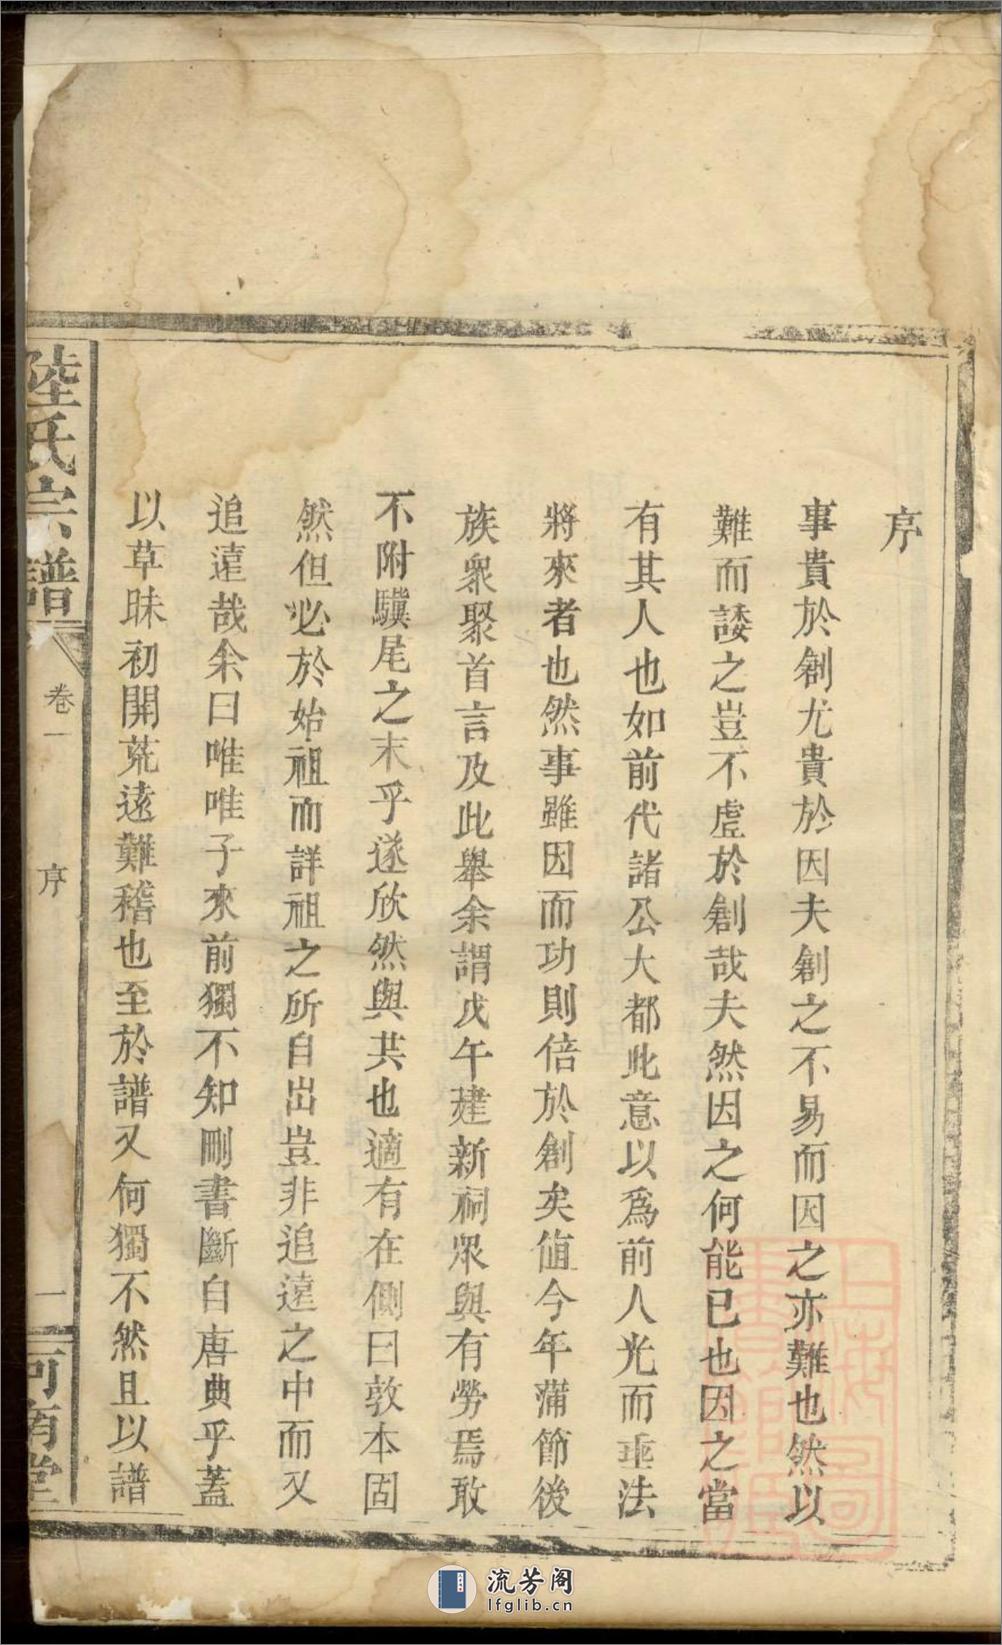 序
事貴於創尤貴於因夫創之不易而因之亦難也然以
難而諉之豈不虛於創哉夫然因之何能已也因之當
有其人也如前代諸公大都此意以爲前人光而垂法
將來者也然事雖因而功則倍於創矣値今年蒲節後
族衆聚首言及此舉余謂戊午建新祠衆與有勞焉敢
不附驥尾之末乎遂欣然與其也適有在側曰敦本固
然但必於始祖而詳祖之所自出豈非追遠之中而又
追遠哉余曰唯唯子來前獨不知刪書斷自唐典乎蓋
以草昧初開荒遠難稽也至於譜又何獨不然且以譜
陸氏宗譜
卷一
序
一
河南堂
上海圖書館藏
流芳阁
lfglib.cn